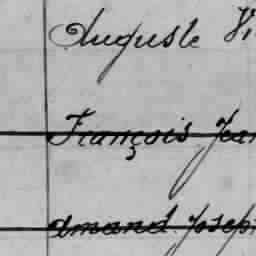 Auguste Vi
François Jean
Amand Joseph